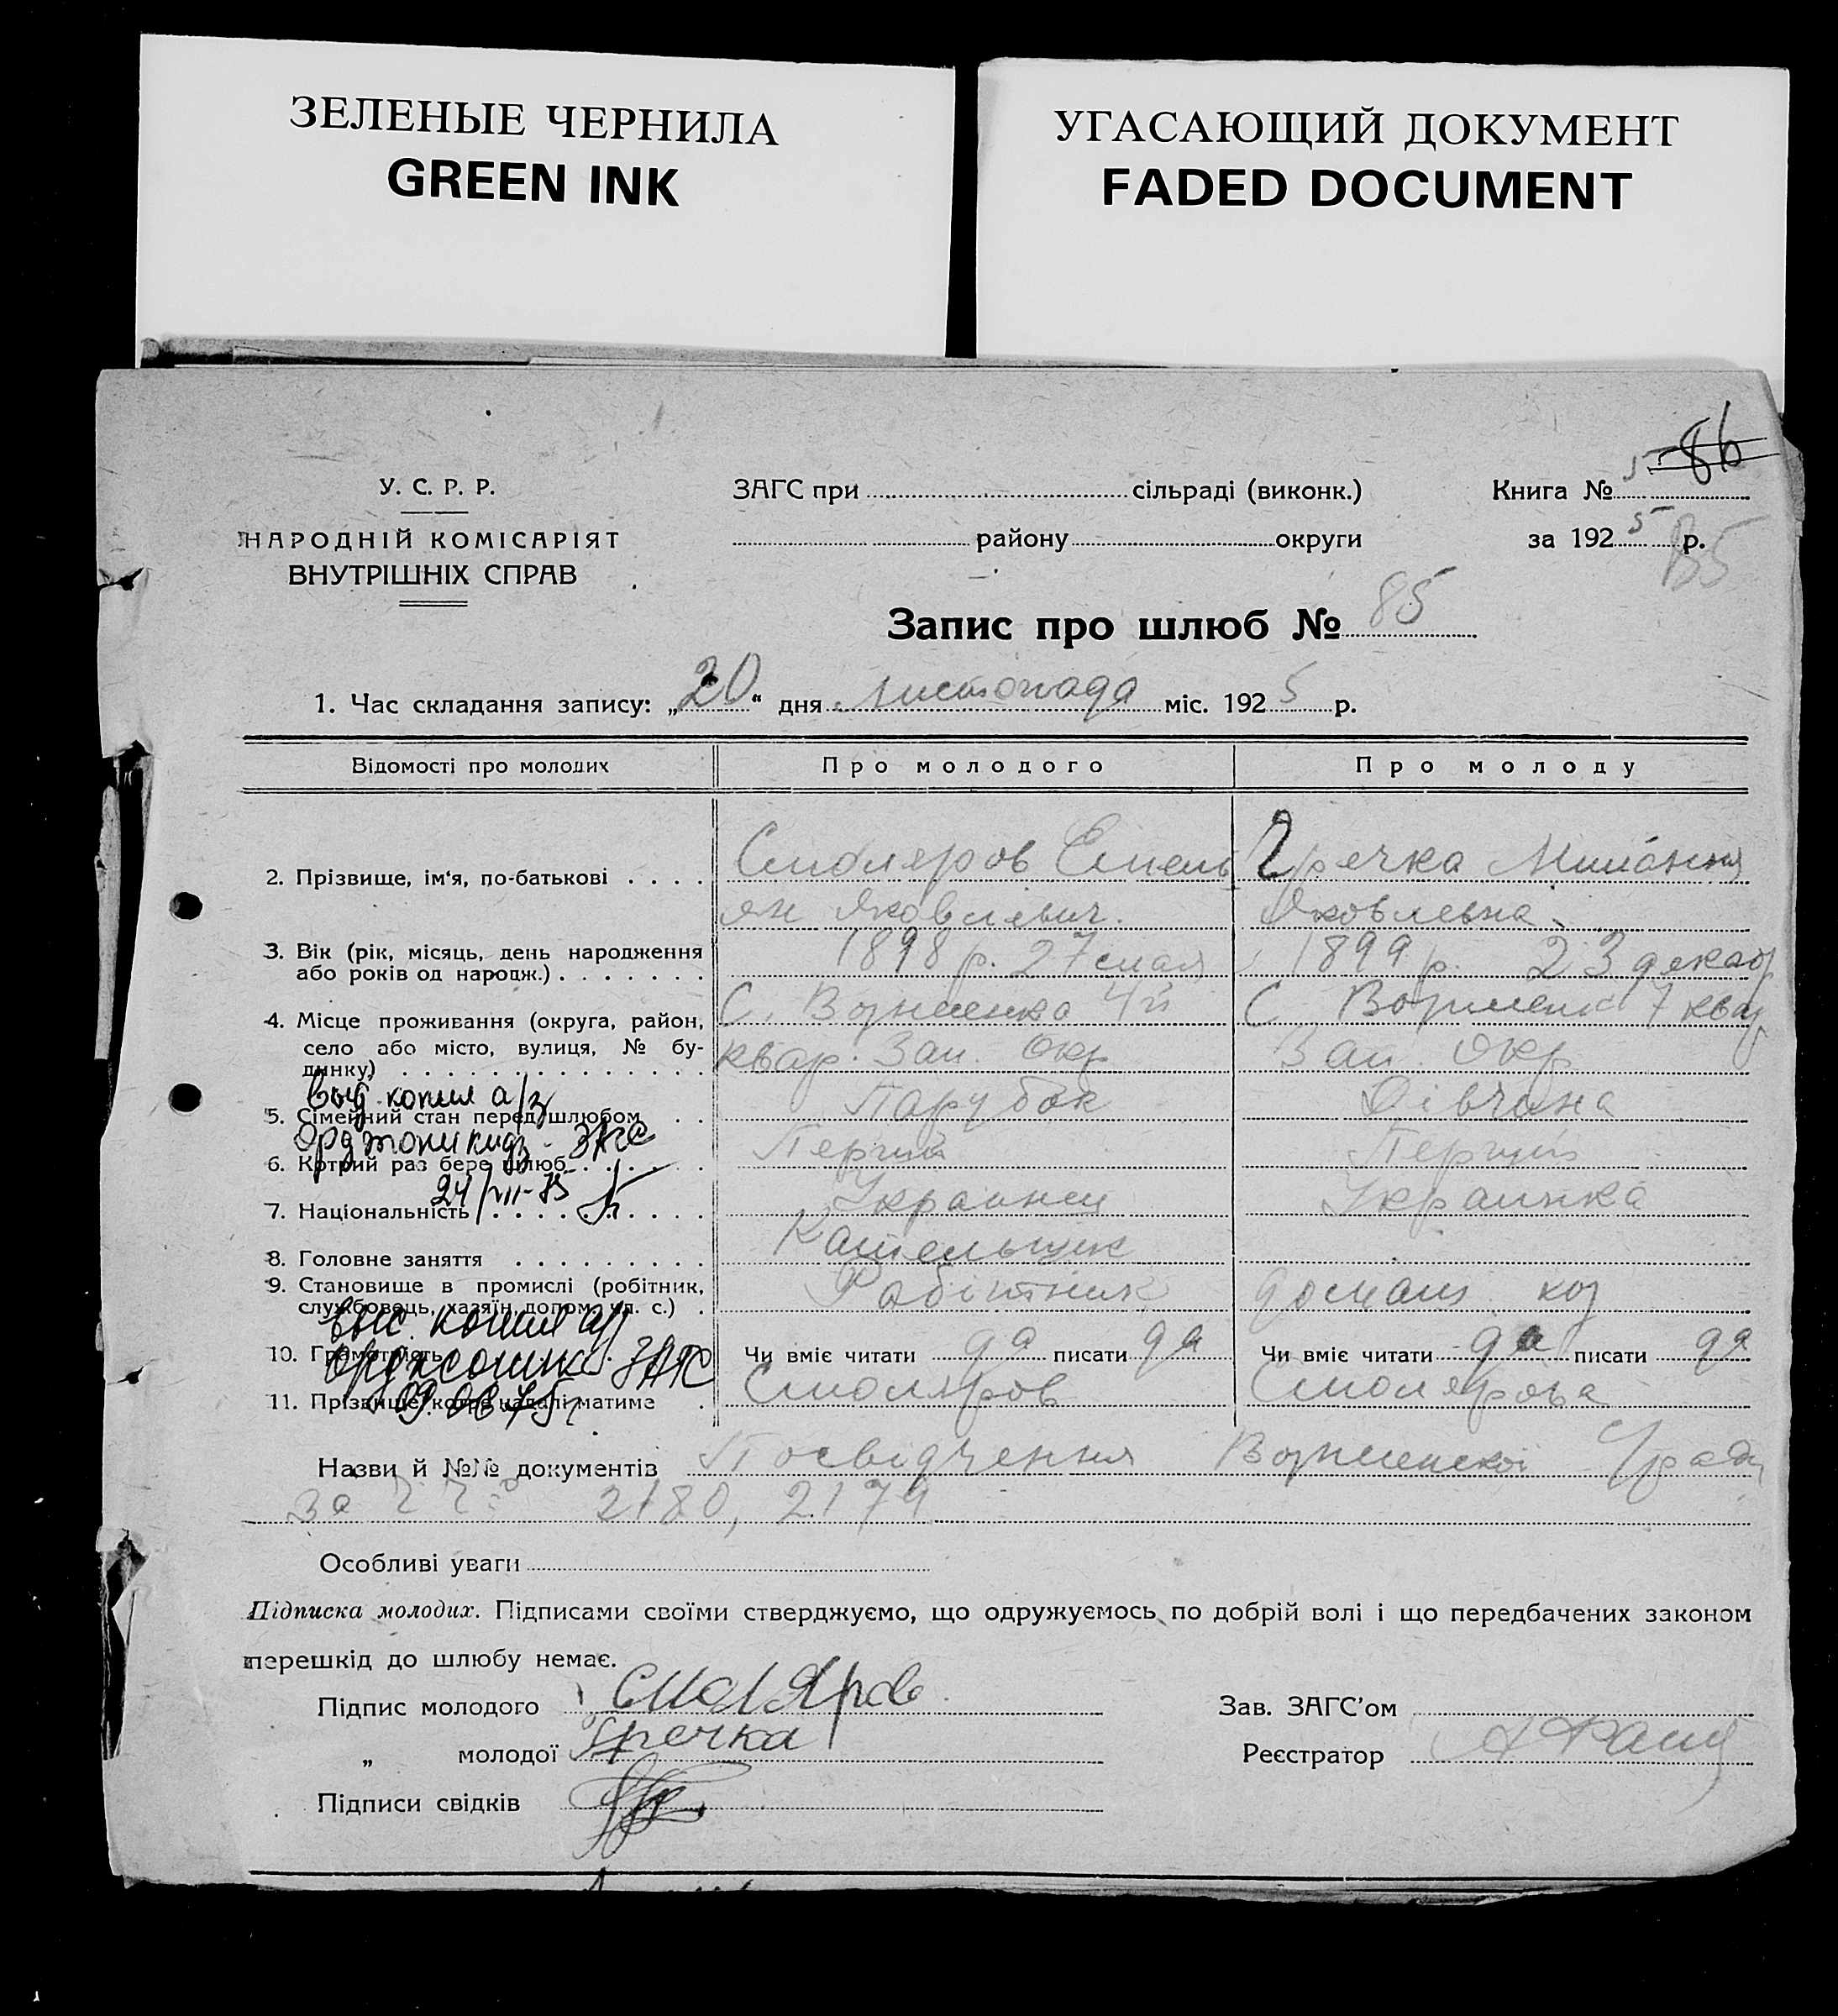 ЗЕЛЕНЫЕ ЧЕРНИЛА
GREEN INK
УГАСАЮЩИЙ ДОКУМЕНТ
FADED DOCUMENT
86
У. С. Р. Р.
ЗАГС при сільраді (виконк.)
Книга № 5
НАРОДНІЙ КОМІСАРІЯТ
ВНУТРІШНІХ СПРАВ
району округи
за 1925 р.
85
Запис про шлюб № 85
1. Час складання запису: „20“ дня листопада міс. 1925 р.
Відомості про молодих Про молодого Про молоду
2. Прізвище, ім'я, по-батькові . . . . Смоляров Емель Гречка
ян Яковлевич. Яковлевна
3. Вік (рік, місяць, день народження
або років од народж.) . . . . . . . 1898 р. 27 мая 1899 р. 23 декабр
4. Місце проживання (округа, район,
село або місто, вулиця, № бу-
динку) . . . . . . . . . . . . . .
С. Вознесенка 4й С Вознесенка 7 квар
квар. Зап. Окр Зап. Окр
Выд. копия а/з
5. Сімейний стан перед шлюбом . . Парубок Дівчина
Орджоникидз. ЗАГС
6. Котрий раз бере шлюб . . . . . . Перший Перший
24/VII-75
7. Національність . . . . . . . . . Украинец Украинка
8. Головне заняття . . . . . . . . . Кательщик
9. Становище в промислі (робітник,
службовець, хазяїн, допом. чл. с.) . Робітник домаш хоз
выс. копия а/з
10. Грамотність Чи вміє читати да писати да Чи вміє читати да писати да
ЗАГС
11. Прізвище, котре надалі матиме . Смоляров Смолярова
Назви й №№ документів Посвідчення Вознесенскої С/ради
за 2180, 2179
Особливі уваги
Підписка молодих. Підписами своїми стверджуємо, що одружуємось по добрій волі і що передбачених законом
перешкід до шлюбу немає.
Підпис молодого Смоляров
Зав. ЗАГС'ом
„ молодої Гречка
Реєстратор
Підписи свідків